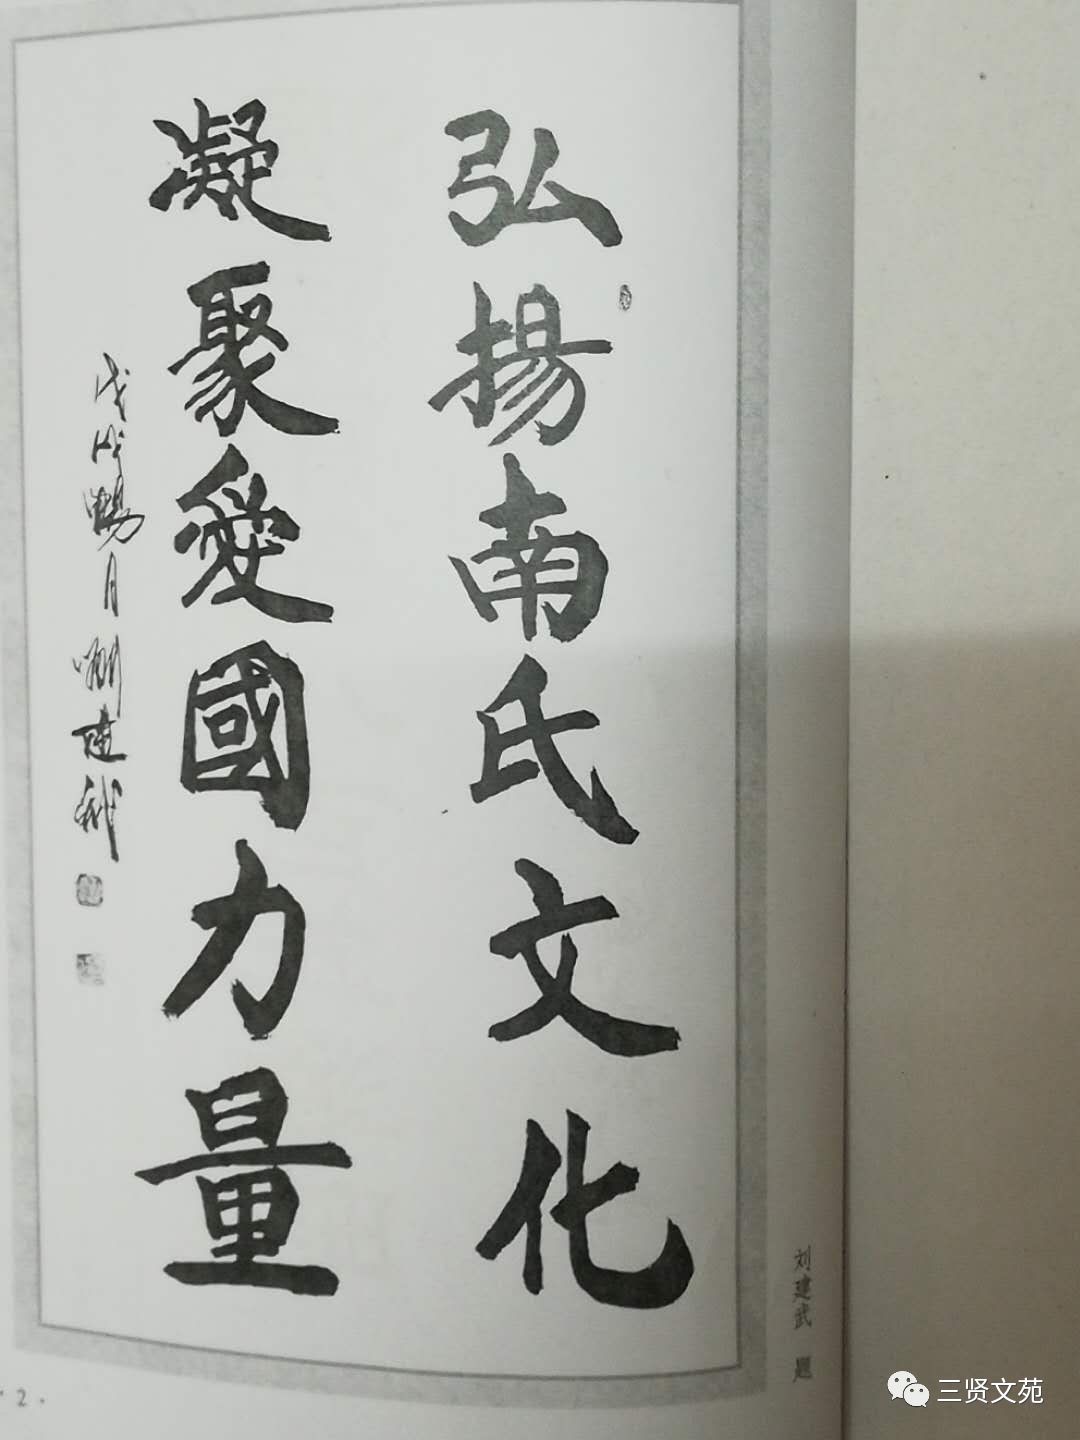 弘揚南氏文化
凝聚愛國力量
戊戌暢月劉建武
刘建武 题
·2·
三贤文苑